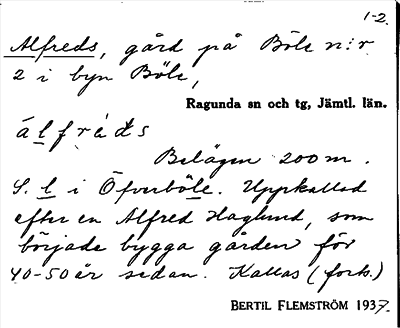 1-2.
Alfreds, gård på Böle n:r
2 i byn Böle,
Ragunda sn och tg, Jämtl. län.
álfrèds
Belägen 200 m.
S. l i Öfverböle. Uppkallad
efter en Alfred Haglund, som
började bygga gården för
40-50 år sedan. Kallas (forts.)
BERTIL FLEMSTRÖM 1937.